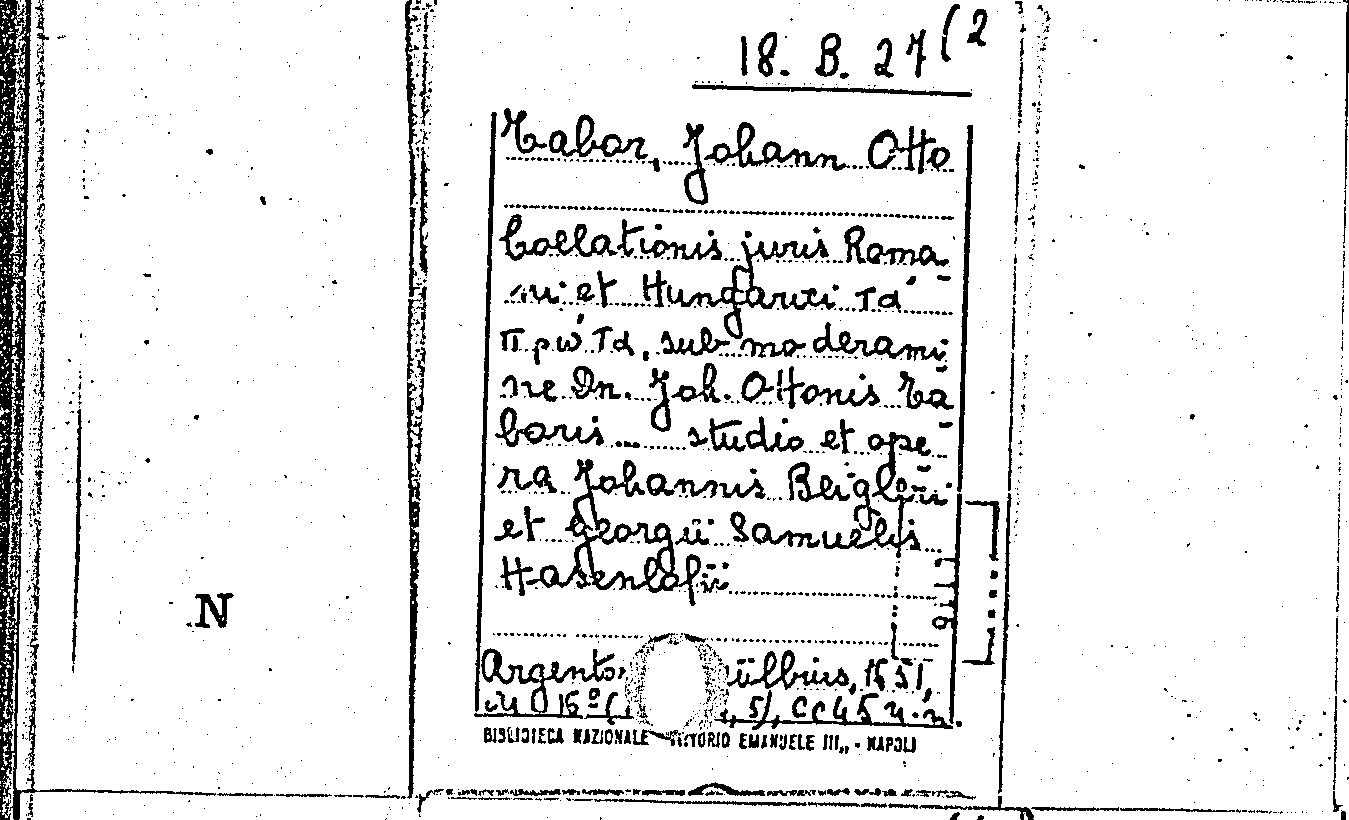 18. B. 27(2
Tabor, Johann Otto
Collationis juris Roma-
ni et Hungarici τά
πρώτα, sub moderami-
ne Dn. Joh. Ottonis Ta-
boris ... studio et ope-
ra Johannis Beigleri
et Georgii Samuelis
Hasenlofii
N
Argento, üllbius, 1651,
in 16º (, 5), cc 45 n.n.
BIBLIOTECA NAZIONALE "VITTORIO EMANUELE III„ - NAPOLI